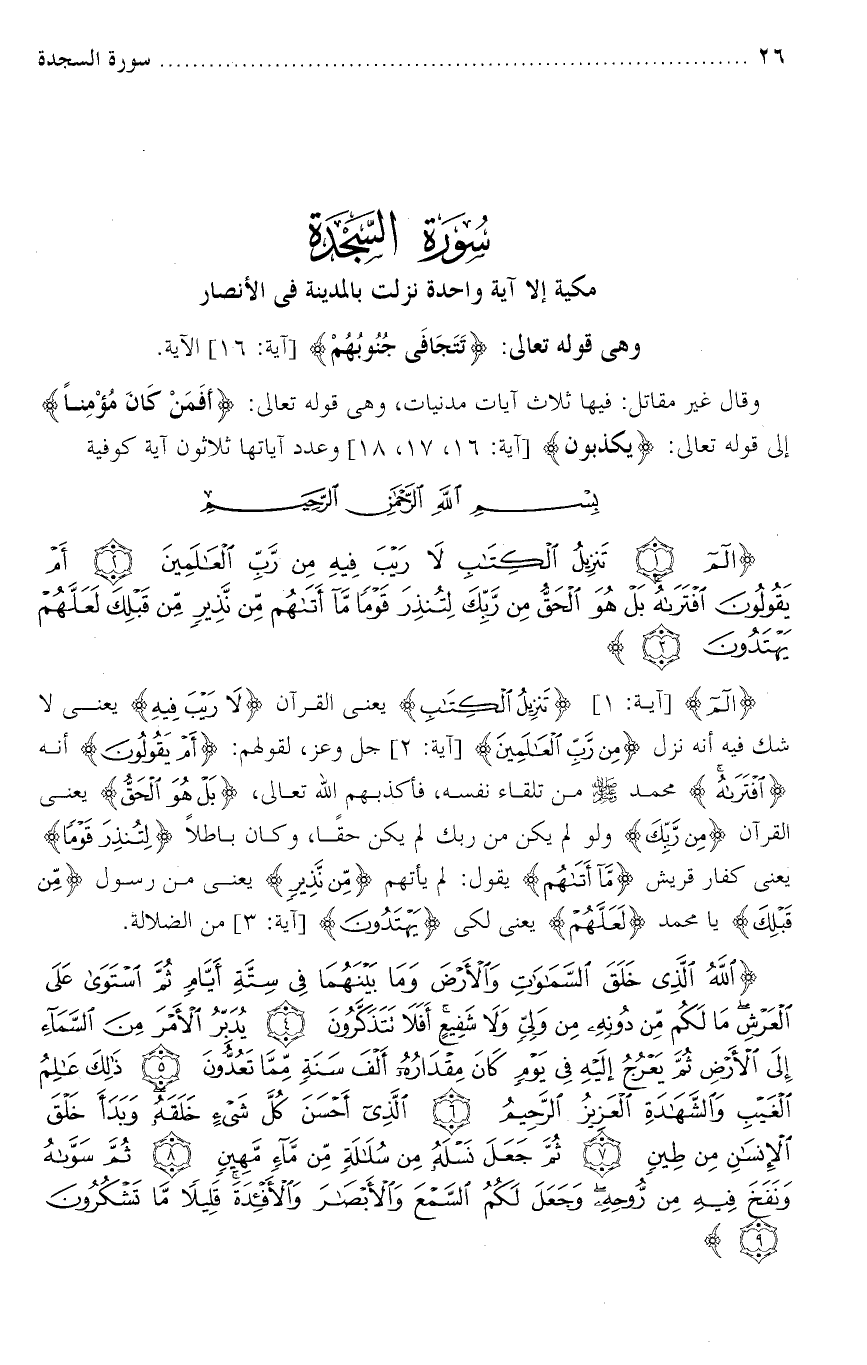 ٢٦ .......................................................................... سورة السجدة
سُورَةُ السَّجْدَةِ
مكية إلا آية واحدة نزلت بالمدينة فى الأنصار
وهى قوله تعالى: ﴿تَتَجَافَى جُنُوبُهُمْ﴾ [آية: ١٦] الآية.
وقال غير مقاتل: فيها ثلاث آيات مدنيات، وهى قوله تعالى: ﴿أَفَمَنْ كَانَ مُؤْمِنـاً﴾
إلى قوله تعالى: ﴿يكذبون﴾ [آية: ١٦، ١٧، ١٨] وعدد آياتها ثلاثون آية كوفية
بِسْمِ اللَّهِ الرَّحْمَٰنِ الرَّحِيمِ
﴿الٓمٓ ١ تَنزِيلُ ٱلْكِتَٰبِ لَا رَيْبَ فِيهِ مِن رَّبِّ ٱلْعَٰلَمِينَ ٢ أَمْ
يَقُولُونَ ٱفْتَرَىٰهُ بَلْ هُوَ ٱلْحَقُّ مِن رَّبِّكَ لِتُنذِرَ قَوْمًا مَّآ أَتَىٰهُم مِّن نَّذِيرٍ مِّن قَبْلِكَ لَعَلَّهُمْ
يَهْتَدُونَ ٣﴾
﴿الٓمٓ﴾ [آية: ١] ﴿تَنزِيلُ ٱلْكِتَٰبِ﴾ يعنى القرآن ﴿لَا رَيْبَ فِيهِ﴾ يعنى لا
شك فيه أنه نزل ﴿مِن رَّبِّ ٱلْعَٰلَمِينَ﴾ [آية: ٢] جل وعز، لقولهم: ﴿أَمْ يَقُولُونَ﴾ أنه
﴿ٱفْتَرَىٰهُ﴾ محمد ﷺ من تلقاء نفسه، فأكذبهم الله تعالى، ﴿بَلْ هُوَ ٱلْحَقُّ﴾ يعنى
القرآن ﴿مِن رَّبِّكَ﴾ ولو لم يكن من ربك لم يكن حقًا، وكان باطلاً ﴿لِتُنذِرَ قَوْمًا﴾
يعنى كفار قريش ﴿مَّآ أَتَىٰهُم﴾ يقول: لم يأتهم ﴿مِّن نَّذِيرٍ﴾ يعنى من رسول ﴿مِّن
قَبْلِكَ﴾ يا محمد ﴿لَعَلَّهُمْ﴾ يعنى لكى ﴿يَهْتَدُونَ﴾ [آية: ٣] من الضلالة.
﴿ٱللَّهُ ٱلَّذِى خَلَقَ ٱلسَّمَٰوَٰتِ وَٱلْأَرْضَ وَمَا بَيْنَهُمَا فِى سِتَّةِ أَيَّامٍ ثُمَّ ٱسْتَوَىٰ عَلَى
ٱلْعَرْشِ ۖ مَا لَكُم مِّن دُونِهِۦ مِن وَلِىٍّ وَلَا شَفِيعٍ ۚ أَفَلَا تَتَذَكَّرُونَ ٤ يُدَبِّرُ ٱلْأَمْرَ مِنَ ٱلسَّمَآءِ
إِلَى ٱلْأَرْضِ ثُمَّ يَعْرُجُ إِلَيْهِ فِى يَوْمٍ كَانَ مِقْدَارُهُۥٓ أَلْفَ سَنَةٍ مِّمَّا تَعُدُّونَ ٥ ذَٰلِكَ عَٰلِمُ
ٱلْغَيْبِ وَٱلشَّهَٰدَةِ ٱلْعَزِيزُ ٱلرَّحِيمُ ٦ ٱلَّذِىٓ أَحْسَنَ كُلَّ شَىْءٍ خَلَقَهُۥ ۖ وَبَدَأَ خَلْقَ
ٱلْإِنسَٰنِ مِن طِينٍ ٧ ثُمَّ جَعَلَ نَسْلَهُۥ مِن سُلَٰلَةٍ مِّن مَّآءٍ مَّهِينٍ ٨ ثُمَّ سَوَّىٰهُ
وَنَفَخَ فِيهِ مِن رُّوحِهِۦ ۖ وَجَعَلَ لَكُمُ ٱلسَّمْعَ وَٱلْأَبْصَٰرَ وَٱلْأَفْـِٔدَةَ ۚ قَلِيلًا مَّا تَشْكُرُونَ
٩﴾